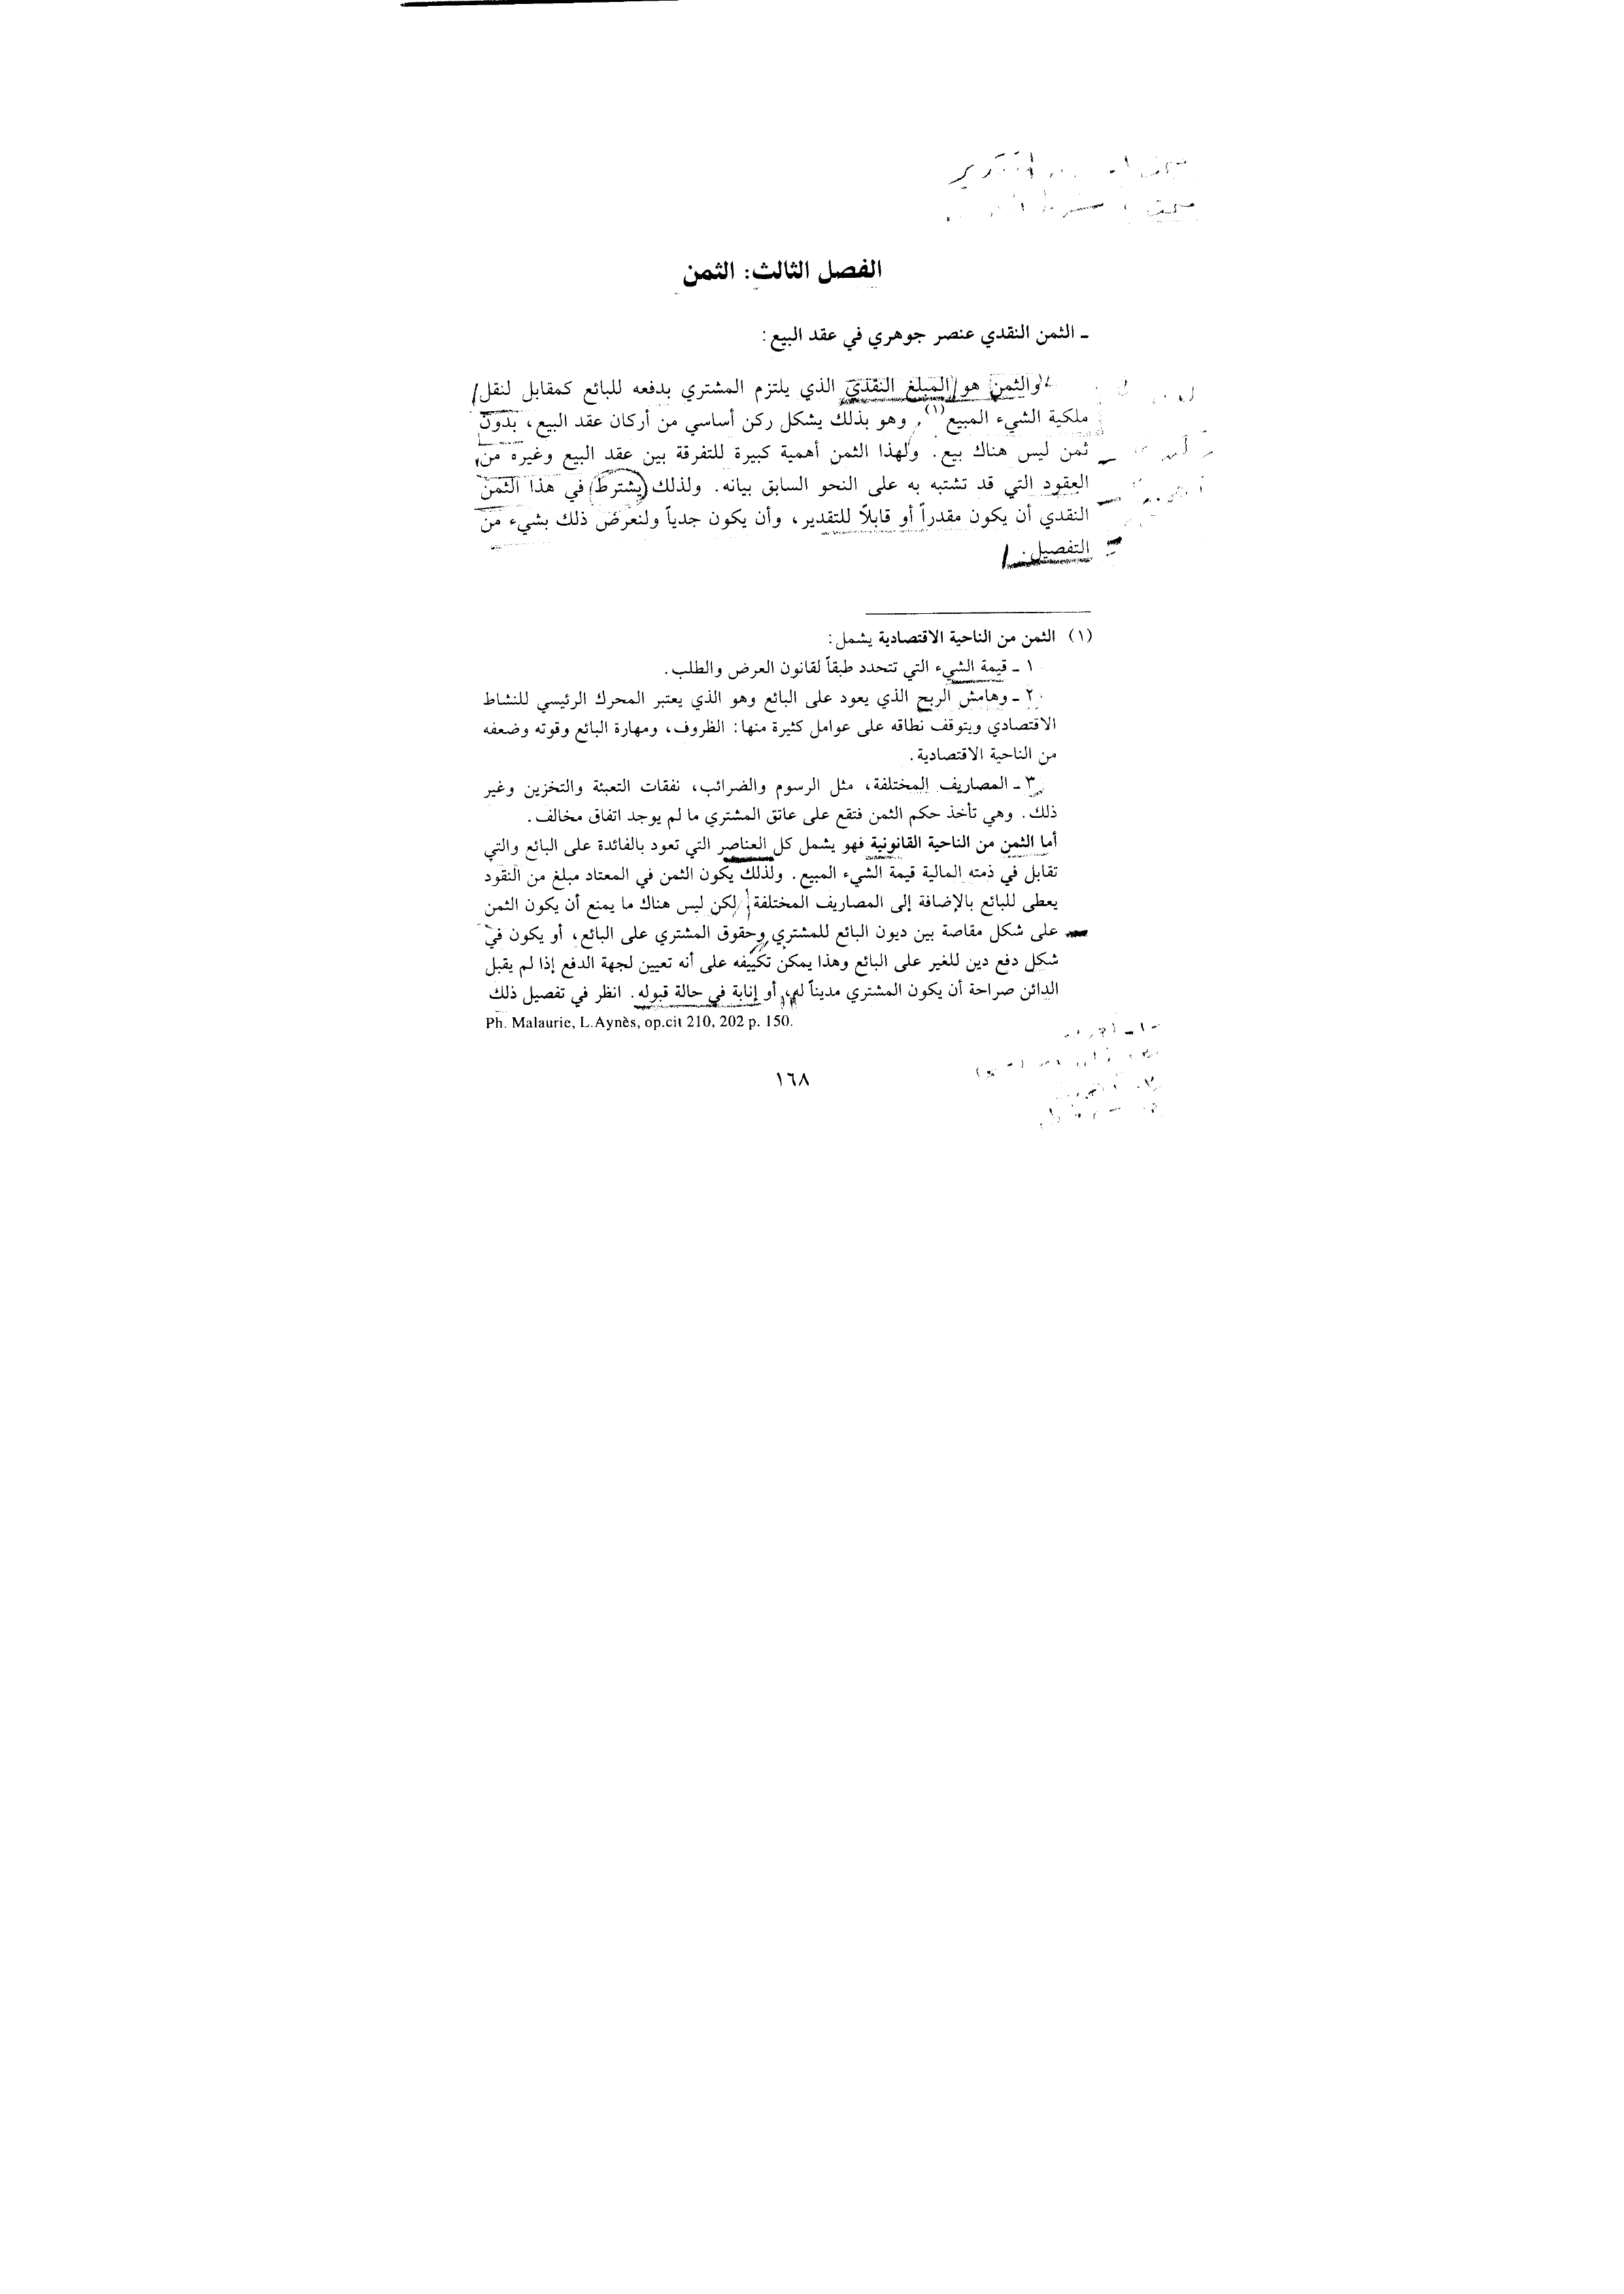 الفصل الثالث: الثمن
ـ الثمن النقدي عنصر جوهري في عقد البيع:
والثمن هو المبلغ النقدي الذي يلتزم المشتري بدفعه للبائع كمقابل لنقل
ملكية الشيء المبيع(١)، وهو بذلك يشكل ركن أساسي من أركان عقد البيع، بدون
ثمن ليس هناك بيع. ولهذا الثمن أهمية كبيرة للتفرقة بين عقد البيع وغيره من
العقود التي قد تشتبه به على النحو السابق بيانه. ولذلك يشترط في هذا الثمن
النقدي أن يكون مقدراً أو قابلاً للتقدير، وأن يكون جدياً ولنعرض ذلك بشيء من
التفصيل.
(١) الثمن من الناحية الاقتصادية يشمل:
١ ـ قيمة الشيء التي تتحدد طبقاً لقانون العرض والطلب.
٢ ـ وهامش الربح الذي يعود على البائع وهو الذي يعتبر المحرك الرئيسي للنشاط
الاقتصادي ويتوقف نطاقه على عوامل كثيرة منها: الظروف، ومهارة البائع وقوته وضعفه
من الناحية الاقتصادية.
٣ ـ المصاريف المختلفة، مثل الرسوم والضرائب، نفقات التعبئة والتخزين وغير
ذلك. وهي تأخذ حكم الثمن فتقع على عاتق المشتري ما لم يوجد اتفاق مخالف.
أما الثمن من الناحية القانونية فهو يشمل كل العناصر التي تعود بالفائدة على البائع والتي
تقابل في ذمته المالية قيمة الشيء المبيع. ولذلك يكون الثمن في المعتاد مبلغ من النقود
يعطى للبائع بالإضافة إلى المصاريف المختلفة لكن ليس هناك ما يمنع أن يكون الثمن
على شكل مقاصة بين ديون البائع للمشتري وحقوق المشتري على البائع، أو يكون في
شكل دفع دين للغير على البائع وهذا يمكن تكييفه على أنه تعيين لجهة الدفع إذا لم يقبل
الدائن صراحة أن يكون المشتري مديناً له، أو إنابة في حالة قبوله. انظر في تفصيل ذلك
Ph. Malaurie, L.Aynès, op.cit 210, 202 p. 150.
١٦٨